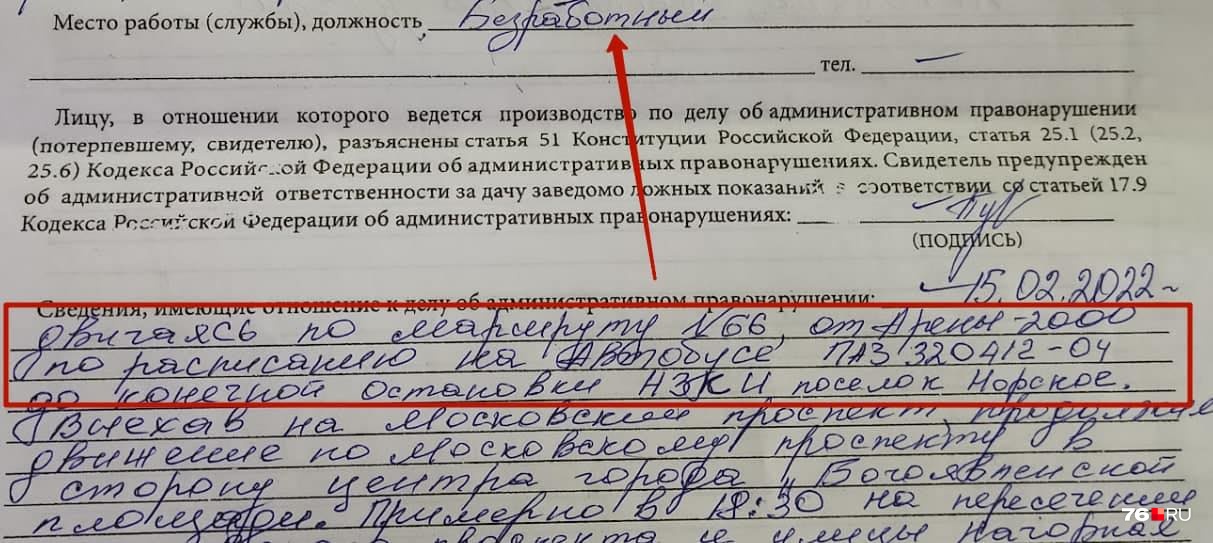 Место работы (службы), должность Безработный
тел. —
Лицу, в отношении которого ведется производство по делу об административном правонарушении
(потерпевшему, свидетелю), разъяснены статья 51 Конституции Российской Федерации, статья 25.1 (25.2,
25.6) Кодекса Российской Федерации об административных правонарушениях. Свидетель предупрежден
об административной ответственности за дачу заведомо ложных показаний в соответствии со статьей 17.9
Кодекса Российской Федерации об административных правонарушениях:
(ПОДПИСЬ)
15.02.2022
Сведения, имеющие отношение к делу об административном правонарушении:
двигаясь по маршруту №66, от Арены-2000
по расписанию на Автобусе ПАЗ 320412-04
до конечной остановки НЗКИ поселок Норское.
Выехав на Московский проспект, продолжил
движение по Московскому проспекту в
сторону центра города, Богоявленской
площади. Примерно в 18:30 на пересечении
проспекта и улицы Нагорная
76.RU